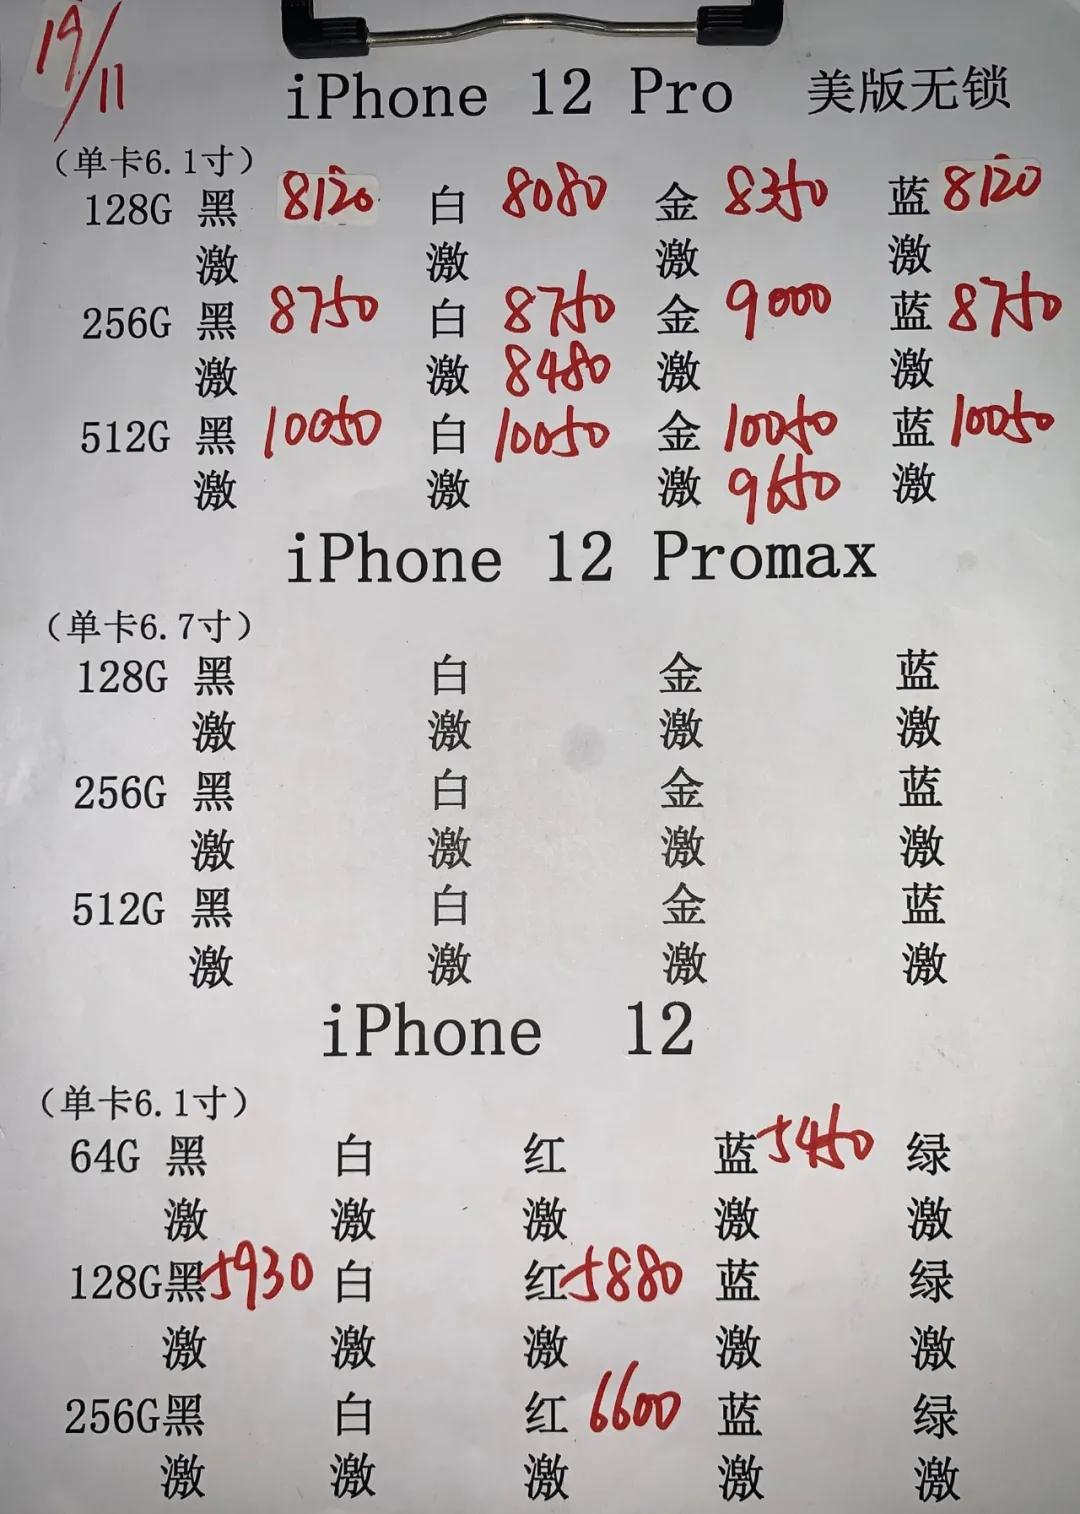 19/11
iPhone 12 Pro 美版无锁
(单卡6.1寸)
128G 黑 8120 白 8080 金 8350 蓝 8120
激 激 激 激
256G 黑 8750 白 8750 金 9000 蓝 8750
激 激 8480 激 激
512G 黑 10050 白 10050 金 10050 蓝 10050
激 激 激 9650 激
iPhone 12 Promax
(单卡6.7寸)
128G 黑 白 金 蓝
激 激 激 激
256G 黑 白 金 蓝
激 激 激 激
512G 黑 白 金 蓝
激 激 激 激
iPhone 12
(单卡6.1寸)
64G 黑 白 红 蓝 5450 绿
激 激 激 激 激
128G 黑 5930 白 红 5880 蓝 绿
激 激 激 激 激
256G 黑 白 红 6600 蓝 绿
激 激 激 激 激